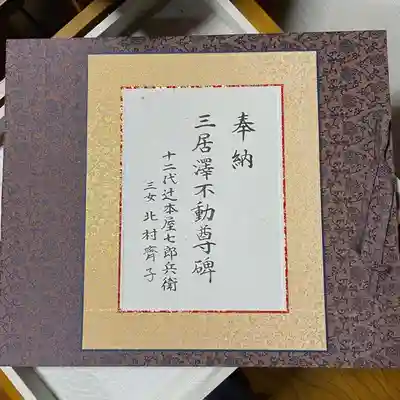 奉納
三居澤不動尊碑
十二代辻本屋七郎兵衛
三女 北村齊子